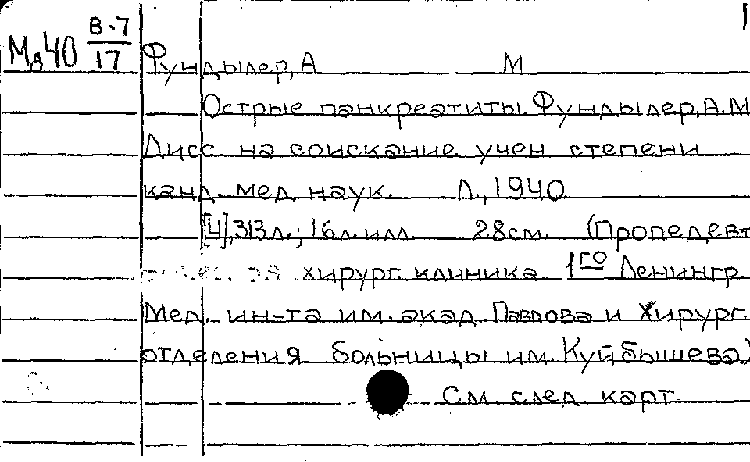 Мд40 В-7/17
Фундылер, А М
Острые панкреатиты. Фундылер, А.М
Дисс на соискание учен степени
канд. мед. наук. Л., 1940
[4], 313л.; 16л. илл. 28см. (Пропедевт
хирург. клиника 1го Ленингр
Мед. ин-та им. акад. Павлова и Хирург.
отделения больницы им. Куйбышева)
См. след. карт.